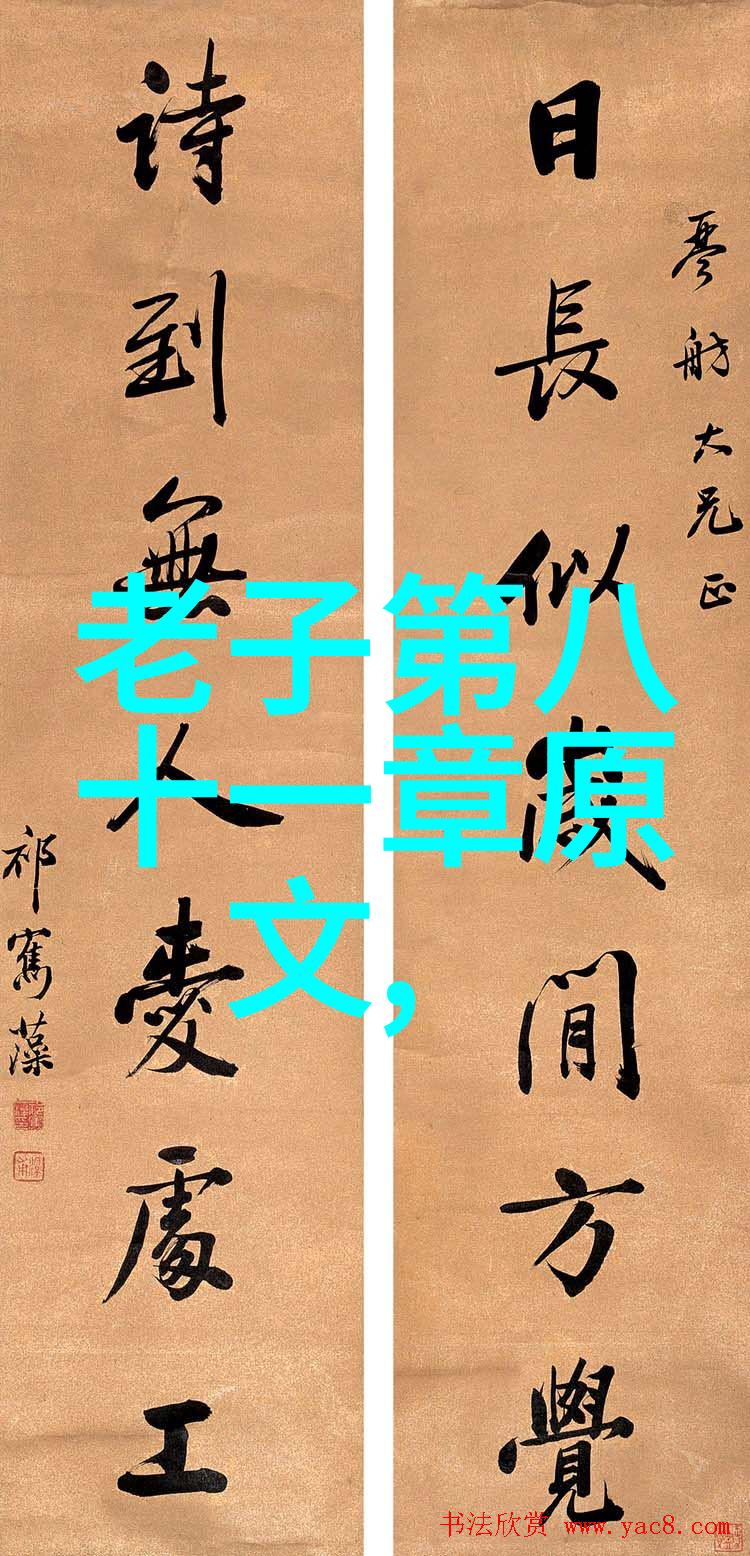 日長似歲閒方覺
琴舫大兄正
詩到無人愛處工
祁寯藻
老子第八
十一章原
文,
书法欣赏 www.yac8.com